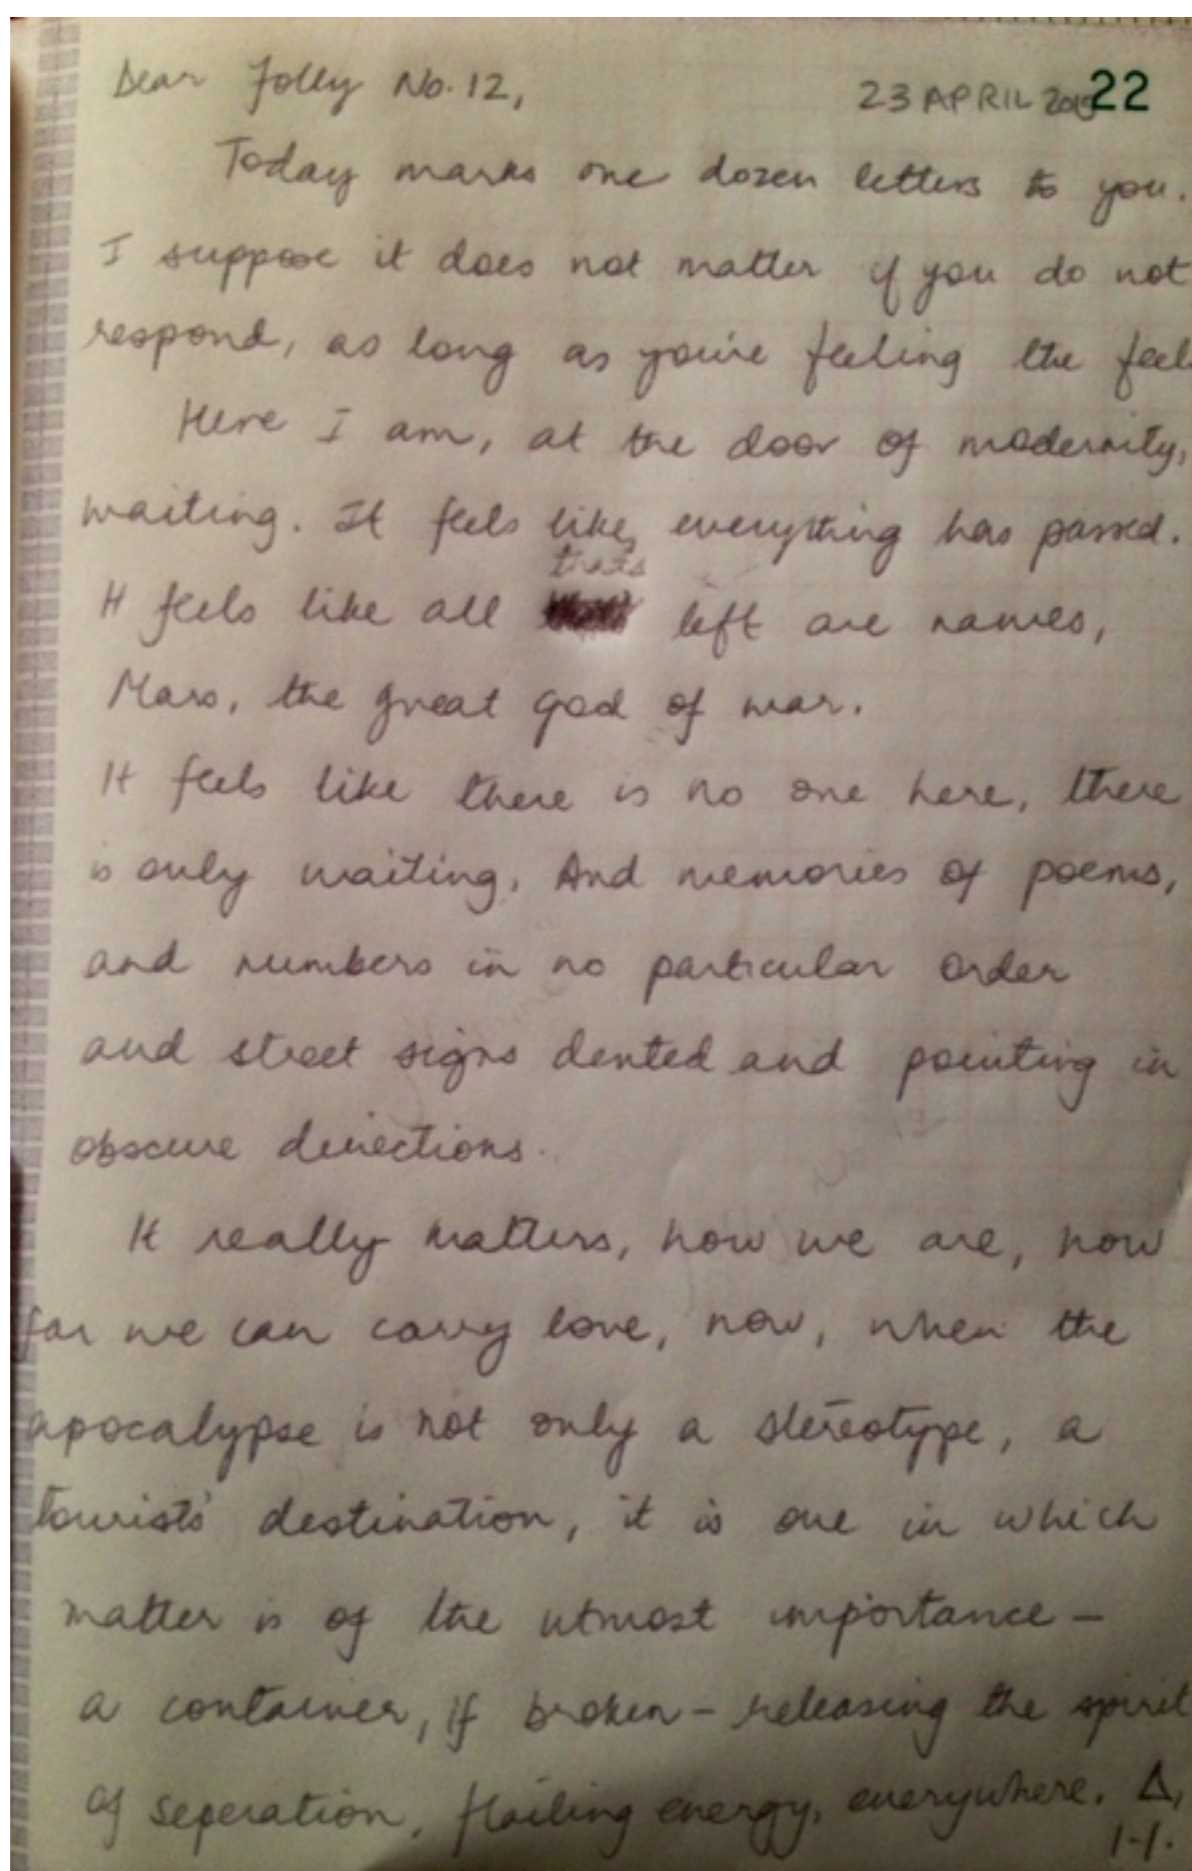 Dear Folly No. 12,
23 APRIL 2015
22
Today marks one dozen letters to you.
I suppose it does not matter if you do not
respond, as long as you're feeling the feel
Here I am, at the door of modernity,
waiting. It feels like, everything has passed.
thats
It feels like all left are names,
Mars, the great god of war.
It feels like there is no one here, there
is only waiting. And memories of poems,
and numbers in no particular order
and street signs dented and pointing in
obscure directions.
It really matters, how we are, how
far we can carry love, now, when the
apocalypse is not only a stereotype, a
tourists' destination, it is one in which
matter is of the utmost importance –
a container, if broken – releasing the spirit
of seperation, flailing energy, everywhere. Δ,
H.